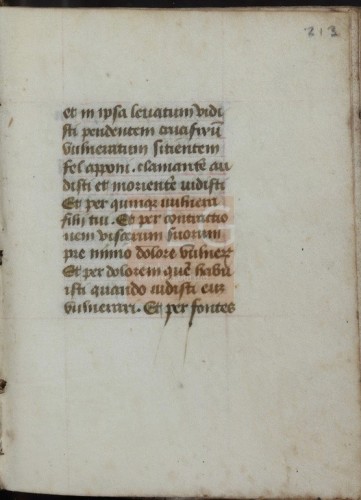 213
et in ipsa leuatum vidi
sti pendentem crucifixũ
vulneratum sitientem
fel apponi. clamantẽ au
disti et morientẽ uidisti
Et per quinqꝫ uulnera
filii tui. Et per contractio
nem viscerum suorum
pre nimio dolore vulnerꝝ
Et per dolorem quẽ habu
isti quando uidisti eum
vulnerari. Et per fontes